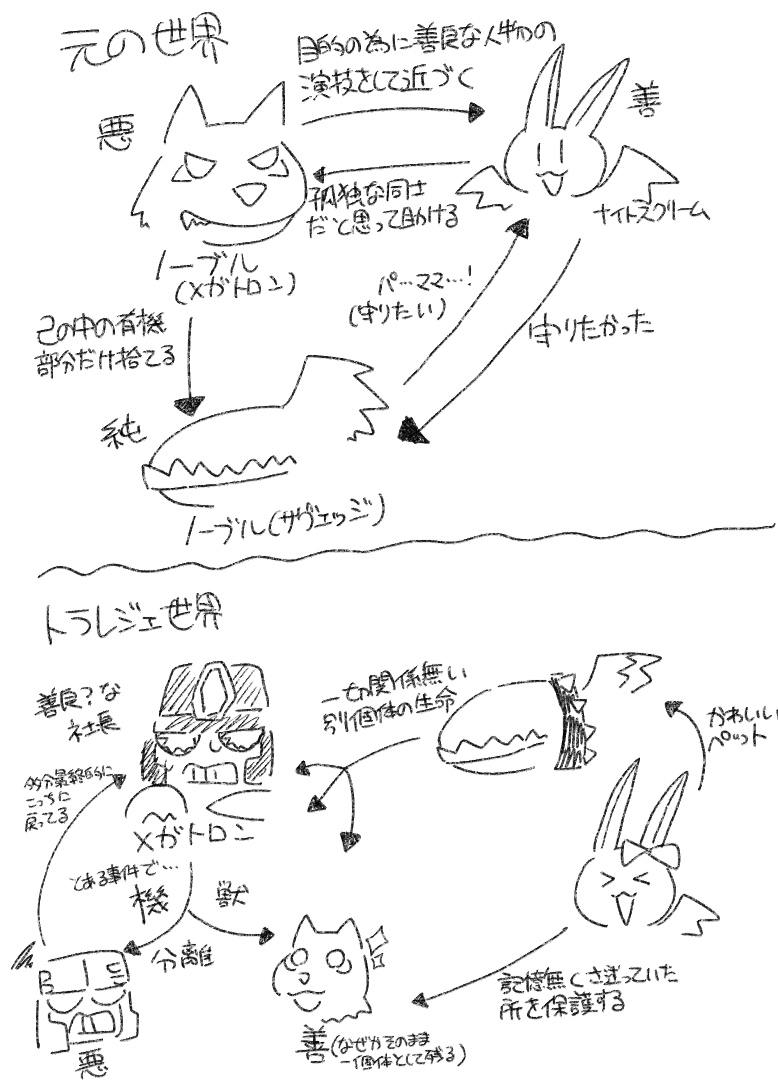 元の世界
目的の為に善良な人物の
演技をして近づく
悪
善
孤独な同士
だと思って助ける
ノーブル
(メガトロン)
ナイトスクリーム
パ…ママ…!
(守りたい)
守りたかった
己の中の有機
部分だけ捨てる
純
ノーブル(サヴェッジ)
トラレジェ世界
善良?な
社長
一切関係無い
別個体の生命
かわいい
ペット
多分最終的に
こっちに
戻ってる
メガトロン
とある事件で…
機
獣
分離
記憶無くさまよっていた
所を保護する
悪
善(なぜかそのまま
一個体として残る)